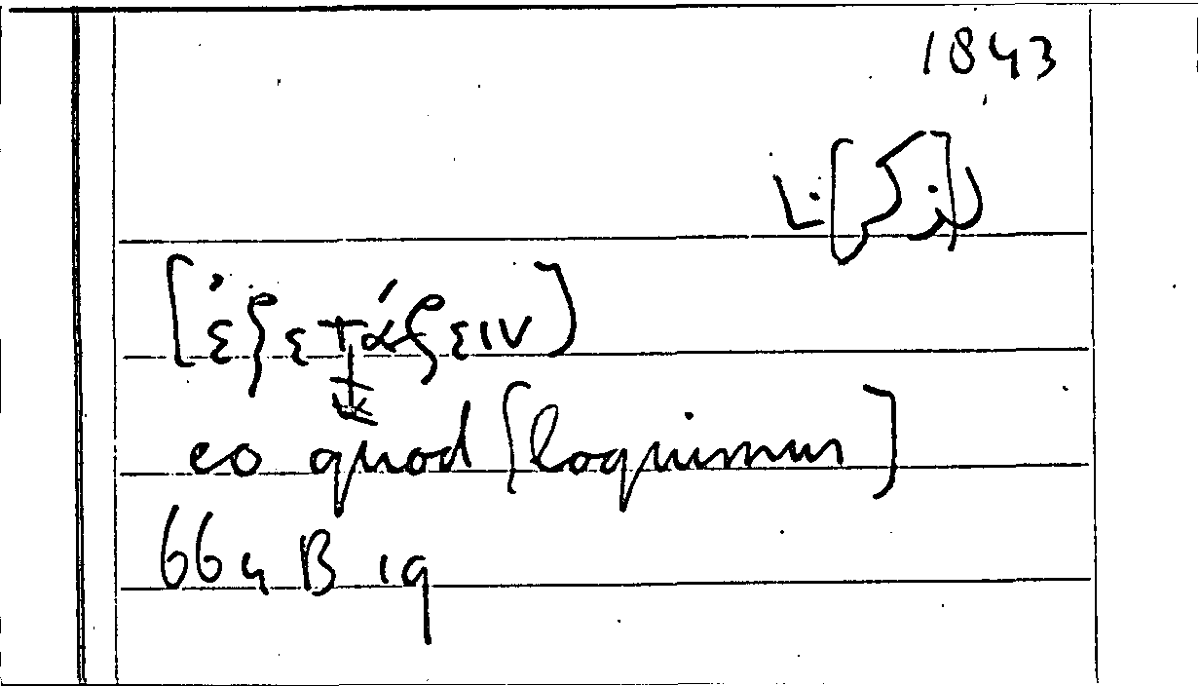 1843
[ἐξετάζειν]
eo quod [loquimur]
664 B 19